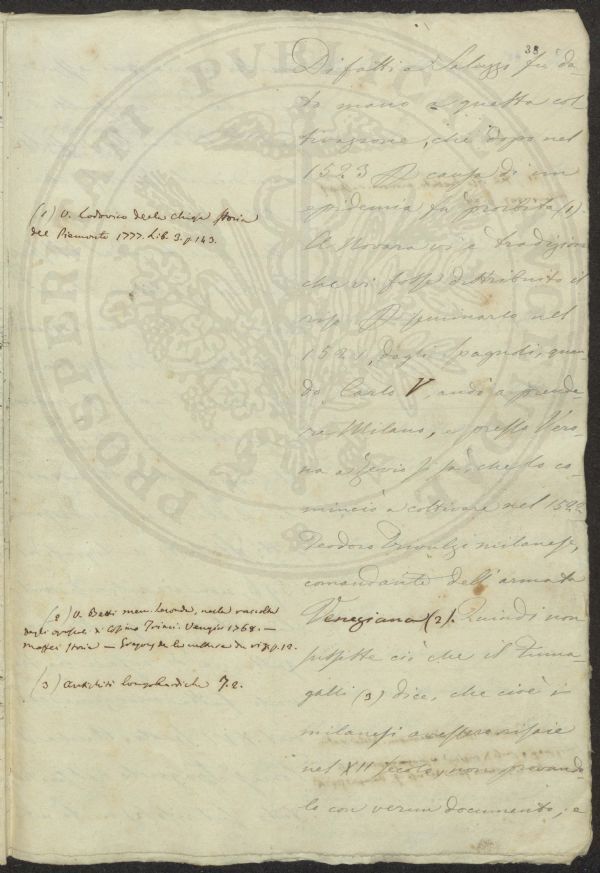 38
Di fatti a Saluzzo fu da-
to mano a questa col
tivazione, che dopo nel
1523 p causa di un
epidemia fu proibita (1).
A Novara vi è tradizion
che vi fosse distribuito il
riso p seminarlo nel
1521, dagli Spagnoli, quan
do Carlo V, andò a prende-
re Milano, e presso Vero-
na a Zevio si sa, che lo co-
minciò a coltivare nel 1522
Teodoro Trivulzi milanese,
comandante dell'armata
Veneziana (2). Quindi non
sussiste ciò che il Fuma-
galli (3) dice, che cioè i
milanesi avessero risaie
nel XII secolo, non provando
lo con verun documento, e
(1) V. Lodovico della Chiesa storia
del Piemonte 1777. Lib. 3. p. 143.
(2) V. Betti mem. seconda, nella raccolta
degli opuscoli di Cosimo Trinci. Venezia 1768. —
Maffei Storia — Gregory de la culture du riz p. 12.
(3) Antichità longobardiche T. 2.
PROSPERITATI PUBLICAE AUGENDAE